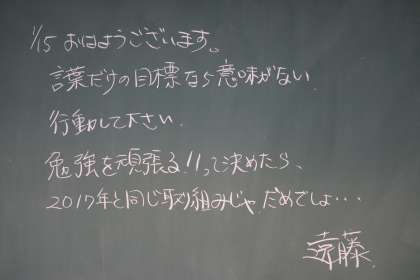 1/15 おはようございます。
言葉だけの目標なら意味がない.
行動して下さい.
勉強を頑張る!!って決めたら、
2017年と同じ取り組みじゃだめでしょ・・・
遠藤